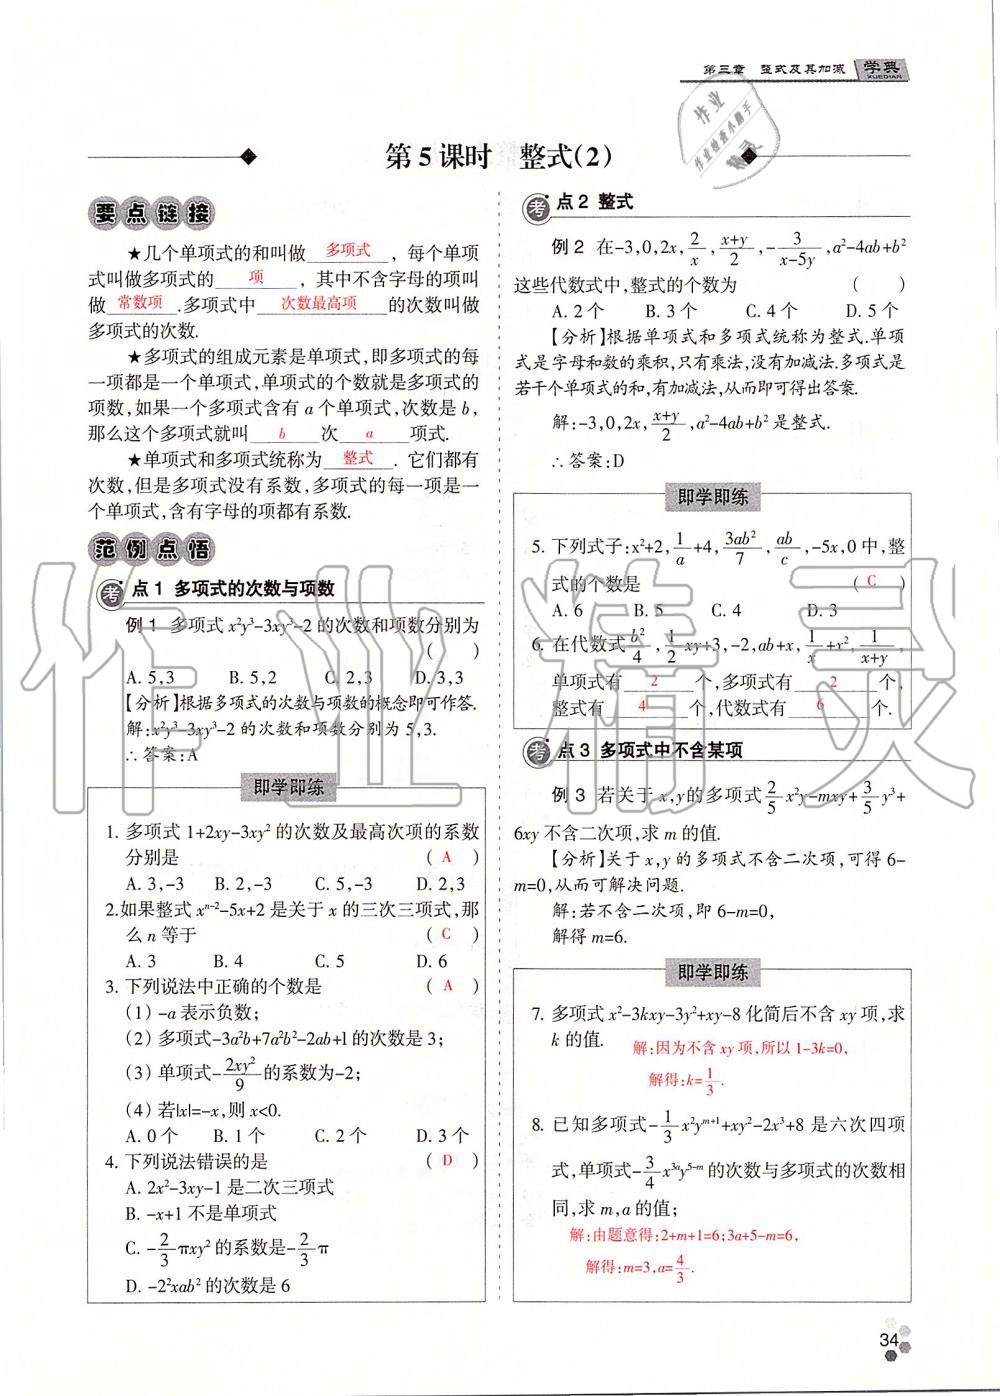 第三章 整式及其加减 学典
XUEDIAN
第5课时 整式(2)
要点链接
★几个单项式的和叫做 多项式 ,每个单项
式叫做多项式的 项 ,其中不含字母的项叫
做 常数项 .多项式中 次数最高项 的次数叫做
多项式的次数.
★多项式的组成元素是单项式,即多项式的每
一项都是一个单项式,单项式的个数就是多项式的
项数,如果一个多项式含有a个单项式,次数是b,
那么这个多项式就叫 b 次 a 项式.
★单项式和多项式统称为 整式 .它们都有
次数,但是多项式没有系数,多项式的每一项是一
个单项式,含有字母的项都有系数.
范例点悟
考点1 多项式的次数与项数
例1 多项式x²y³-3xy³-2的次数和项数分别为
( )
A. 5,3 B. 5,2 C. 2,3 D. 3,3
【分析】根据多项式的次数与项数的概念即可作答.
解:x²y³-3xy³-2的次数和项数分别为5,3.
∴答案:A
即学即练
1. 多项式1+2xy-3xy²的次数及最高次项的系数
分别是 ( A )
A. 3,-3 B. 2,-3 C. 5,-3 D. 2,3
2.如果整式xⁿ⁻²-5x+2是关于x的三次三项式,那
么n等于 ( C )
A. 3 B. 4 C. 5 D. 6
3. 下列说法中正确的个数是 ( A )
(1) -a表示负数;
(2) 多项式-3a²b+7a²b²-2ab+1的次数是3;
(3) 单项式-2xy²/9的系数为-2;
(4) 若|x|=-x,则x<0.
A. 0个 B. 1个 C. 2个 D. 3个
4. 下列说法错误的是 ( D )
A. 2x²-3xy-1是二次三项式
B. -x+1不是单项式
C. -2/3πxy²的系数是-2/3π
D. -2²xab²的次数是6
考点2 整式
例2 在-3,0,2x,2/x,(x+y)/2,-3/(x-5y),a²-4ab+b²
这些代数式中,整式的个数为 ( )
A. 2个 B. 3个 C. 4个 D. 5个
【分析】根据单项式和多项式统称为整式.单项
式是字母和数的乘积,只有乘法,没有加减法.多项式是
若干个单项式的和,有加减法,从而即可得出答案.
解:-3,0,2x,(x+y)/2,a²-4ab+b²是整式.
∴答案:D
即学即练
5. 下列式子:x²+2,1/a+4,3ab²/7,ab/c,-5x,0中,整
式的个数是 ( C )
A. 6 B. 5 C. 4 D. 3
6. 在代数式b²/4,1/2xy+3,-2,ab+x,1/x+x²,1/(x+y),
单项式有 2 个,多项式有 2 个,
整式有 4 个,代数式有 6 个.
考点3 多项式中不含某项
例3 若关于x,y的多项式2/5x²y-mxy+3/5y³+
6xy不含二次项,求m的值.
【分析】关于x,y的多项式不含二次项,可得6-
m=0,从而可解决问题.
解:若不含二次项,即6-m=0,
解得m=6.
即学即练
7. 多项式x²-3kxy-3y²+xy-8化简后不含xy项,求
k的值. 解:因为不含xy项,所以1-3k=0,
解得:k=1/3.
8. 已知多项式-1/3x²yᵐ⁺¹+xy²-2x³+8是六次四项
式,单项式-3/4x³ᵃy⁵⁻ᵐ的次数与多项式的次数相
同,求m,a的值;
解:由题意得:2+m+1=6;3a+5-m=6,
解得:m=3,a=4/3.
34
作业精灵
作业
作业检查小助手
精灵